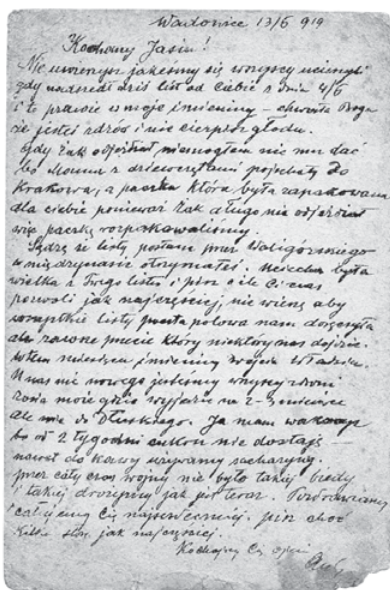 Wadowice 13/6 919
Kochany Jasiu!
Nie uwierzysz jakeśmy się wszyscy ucieszyli
gdy nadszedł dziś list od Ciebie z dnia 4/6
i to prawie w moje imieniny – chwała Bogu
że jesteś zdrów i nie cierpisz głodu.
Gdy Żak odjeżdżał niemogłem nic mu dać
bo Mama z dziewczętami pojechały do
Krakowa, a paczka która była zapakowana
dla ciebie ponieważ Żak długo nie odjeżdżał
więc paczkę rozpakowaliśmy.
Sądzę że listy posłane przez Waligórskiego
w międzyczasie otrzymałeś. Uciecha była
wielka z Twego listu i pisz o ile Ci czas
pozwoli jak najczęściej, nie wierzę aby
wszystkie listy poczta polowa nam doręczyła
ale zawsze przecie który niektóry nas dojdzie.
W tem miesiącu imieniny Twojej Władzi.
U nas nic nowego jesteśmy wszyscy zdrowi
może gdzie wyjedzie na 2-3 miesiące
ale nie do Dłuskiego. Ja mam wakacye
bo od 2 tygodni cukru nie dostaję –
nawet do kawy używamy sacharyny.
przez cały czas wojny nie było takiej biedy
i takiej drożyzny jak jest teraz. Pozdrawiamy
i całujemy Cię najserdeczniej. pisz choć
kilka słów jak najczęściej.
Kochający Cię ojciec